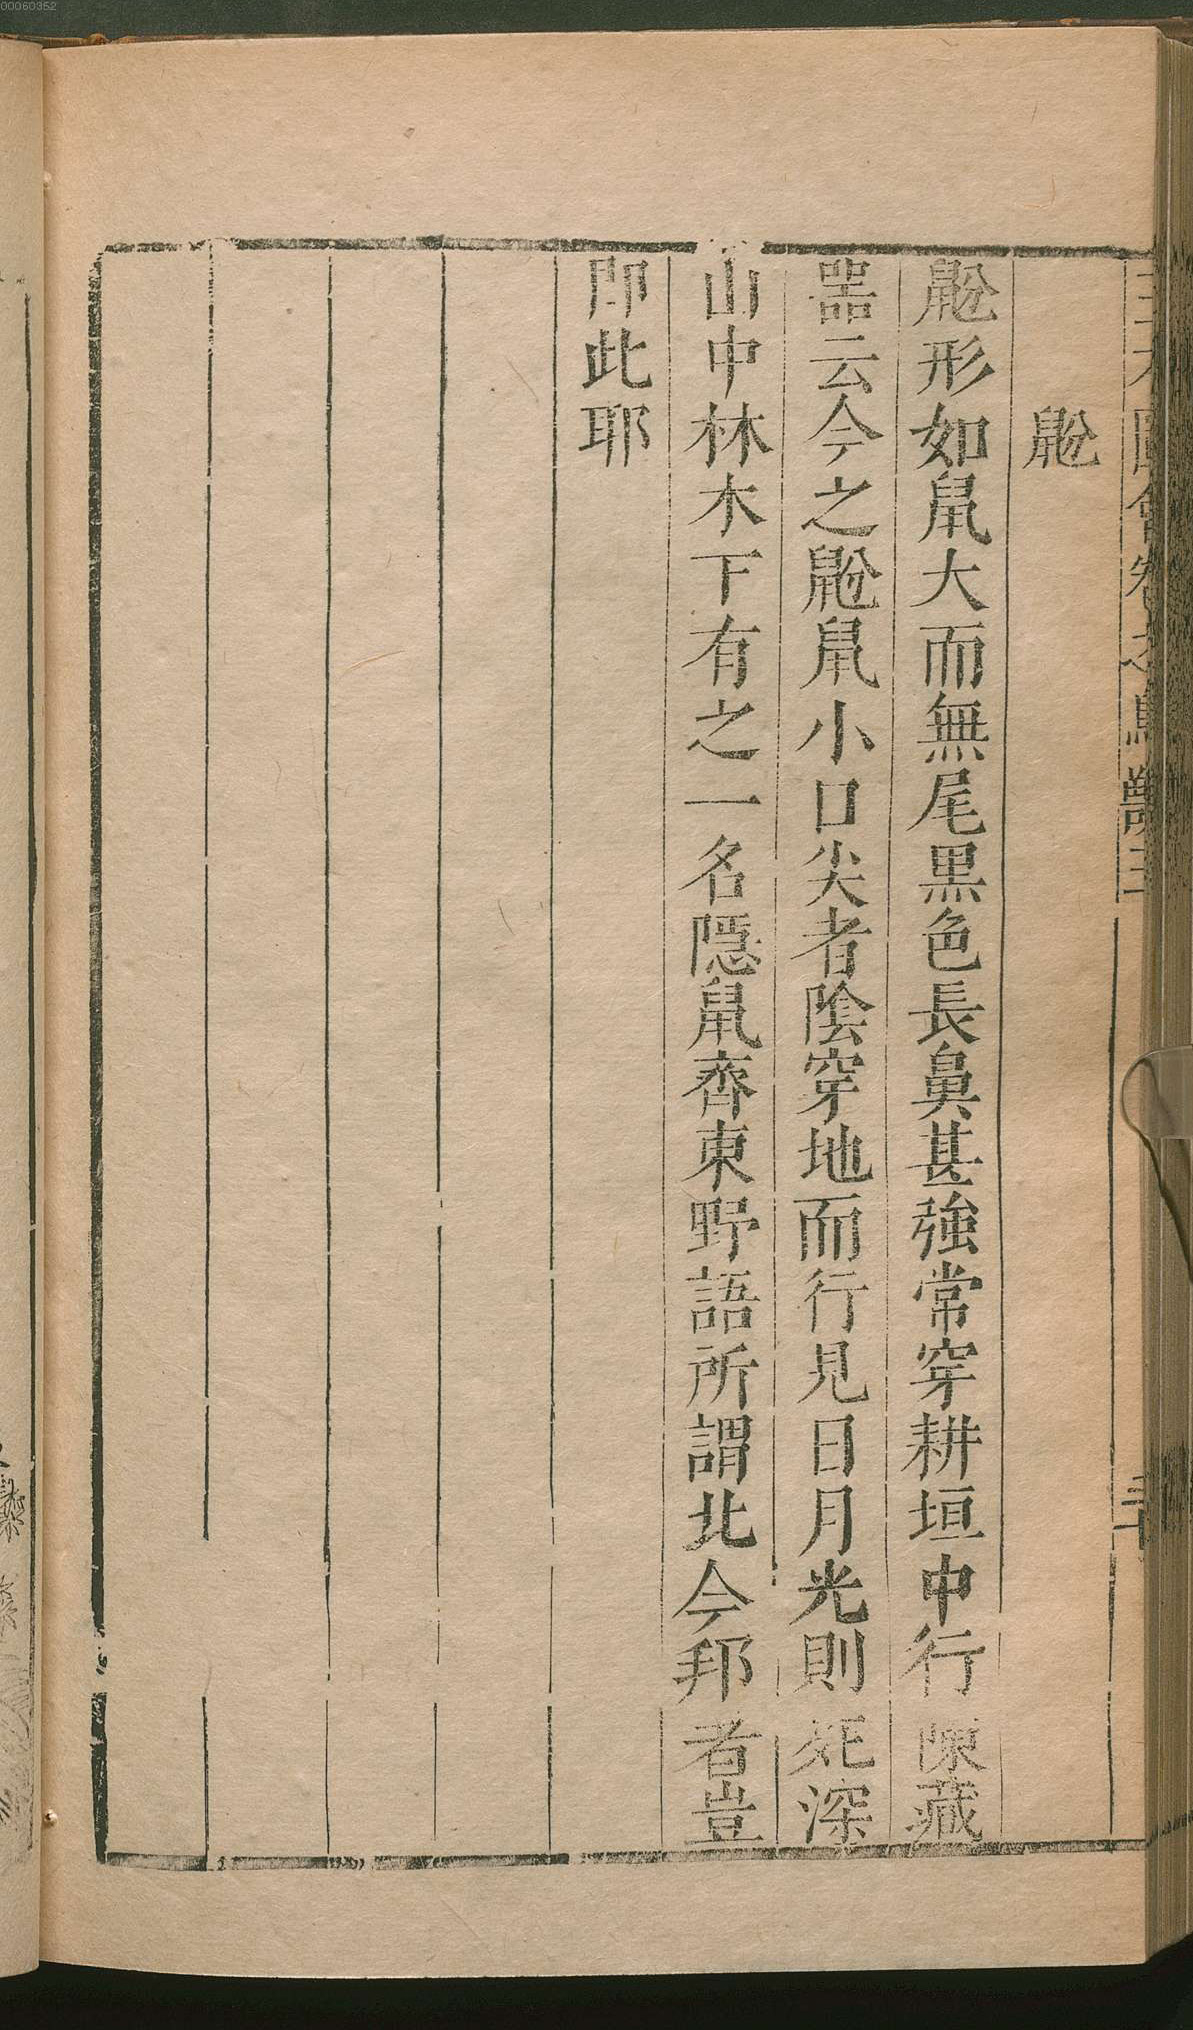 00060352
鼢
鼢形如鼠大而無尾黒色長鼻甚強常穿耕垣中行陳藏
噐云今之鼢鼠小口尖者陰穿地而行見日月光則死深
山中林木下有之一名隱鼠齊東野語所謂北今邦者豈
即此耶